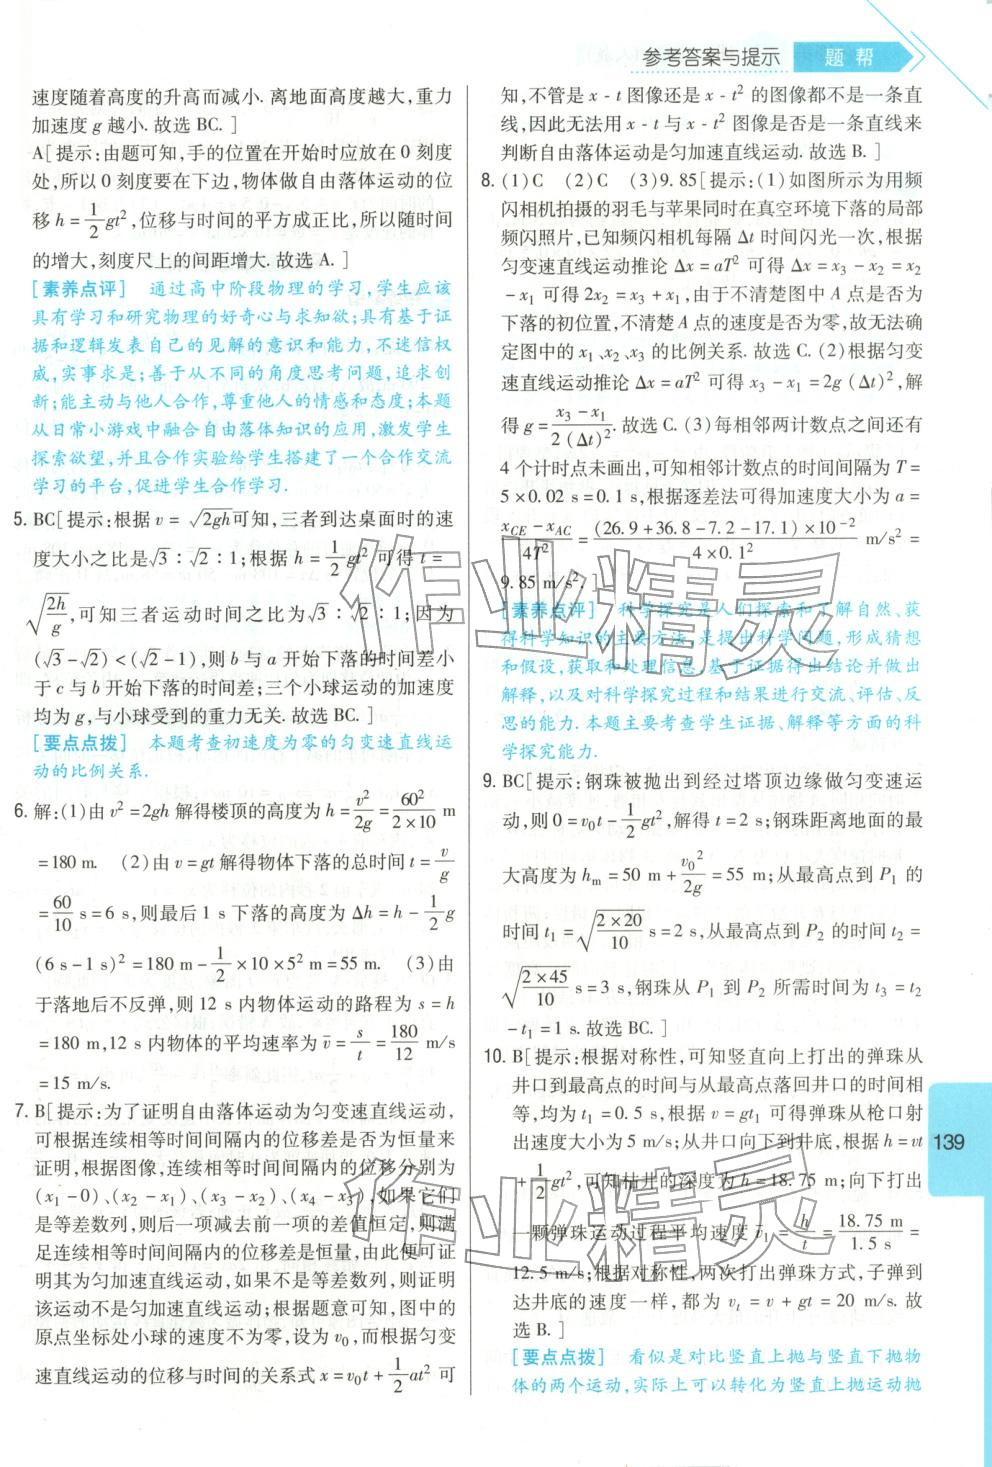 参考答案与提示 题 帮
速度随着高度的升高而减小. 离地面高度越大,重力
加速度 g 越小. 故选 BC. ]
A[提示:由题可知,手的位置在开始时应放在 0 刻度
处,所以 0 刻度要在下边,物体做自由落体运动的位
移 h = 1/2 gt²,位移与时间的平方成正比,所以随时间
的增大,刻度尺上的间距增大. 故选 A. ]
[素养点评] 通过高中阶段物理的学习,学生应该
具有学习和研究物理的好奇心与求知欲;具有基于证
据和逻辑发表自己的见解的意识和能力,不迷信权
威,实事求是;善于从不同的角度思考问题,追求创
新;能主动与他人合作,尊重他人的情感和态度;本题
从日常小游戏中融合自由落体知识的应用,激发学生
探索欲望,并且合作实验给学生搭建了一个合作交流
学习的平台,促进学生合作学习.
5. BC[提示:根据 v = √(2gh)可知,三者到达桌面时的速
度大小之比是√3 : √2 : 1;根据 h = 1/2 gt² 可得 t =
√(2h/g),可知三者运动时间之比为√3 : √2 : 1;因为
(√3 - √2) < (√2 - 1),则 b 与 a 开始下落的时间差小
于 c 与 b 开始下落的时间差;三个小球运动的加速度
均为 g,与小球受到的重力无关. 故选 BC. ]
[要点点拨] 本题考查初速度为零的匀变速直线运
动的比例关系.
6. 解:(1)由 v² = 2gh 解得楼顶的高度为 h = v²/2g = 60²/(2×10) m
= 180 m. (2)由 v = gt 解得物体下落的总时间 t = v/g
= 60/10 s = 6 s,则最后 1 s 下落的高度为 Δh = h - 1/2 g
(6 s - 1 s)² = 180 m - 1/2 × 10 × 5² m = 55 m. (3)由
于落地后不反弹,则 12 s 内物体运动的路程为 s = h
= 180 m,12 s 内物体的平均速率为 v̄ = s/t = 180/12 m/s
= 15 m/s.
7. B[提示:为了证明自由落体运动为匀变速直线运动,
可根据连续相等时间间隔内的位移差是否为恒量来
证明,根据图像,连续相等时间间隔内的位移分别为
(x₁ - 0)、(x₂ - x₁)、(x₃ - x₂)、(x₄ - x₃),如果它们
是等差数列,则后一项减去前一项的差值恒定,则满
足连续相等时间间隔内的位移差是恒量,由此便可证
明其为匀加速直线运动,如果不是等差数列,则证明
该运动不是匀加速直线运动;根据题意可知,图中的
原点坐标处小球的速度不为零,设为 v₀,而根据匀变
速直线运动的位移与时间的关系式 x = v₀t + 1/2 at² 可
知,不管是 x - t 图像还是 x - t² 的图像都不是一条直
线,因此无法用 x - t 与 x - t² 图像是否是一条直线来
判断自由落体运动是匀加速直线运动. 故选 B. ]
8. (1)C (2)C (3)9. 85[提示:(1)如图所示为用频
闪相机拍摄的羽毛与苹果同时在真空环境下落的局部
频闪照片,已知频闪相机每隔 Δt 时间闪光一次,根据
匀变速直线运动推论 Δx = aT² 可得 Δx = x₃ - x₂ = x₂
- x₁ 可得 2x₂ = x₃ + x₁,由于不清楚图中 A 点是否为
下落的初位置,不清楚 A 点的速度是否为零,故无法确
定图中的 x₁、x₂、x₃ 的比例关系. 故选 C. (2)根据匀变
速直线运动推论 Δx = aT² 可得 x₃ - x₁ = 2g (Δt)²,解
得 g = (x₃ - x₁)/(2 (Δt)²). 故选 C. (3)每相邻两计数点之间还有
4 个计时点未画出,可知相邻计数点的时间间隔为 T =
5 × 0.02 s = 0.1 s,根据逐差法可得加速度大小为 a =
(x_CE - x_AC)/4T² = ((26.9 + 36.8 - 7.2 - 17.1) × 10⁻²)/(4 × 0.1²) m/s² =
9.85 m/s². ]
[素养点评] 科学探究是人们探索和了解自然、获
得科学知识的主要方法,是提出科学问题,形成猜想
和假设,获取和处理信息,基于证据得出结论并做出
解释,以及对科学探究过程和结果进行交流、评估、反
思的能力. 本题主要考查学生证据、解释等方面的科
学探究能力.
9. BC[提示:钢珠被抛出到经过塔顶边缘做匀变速运
动,则 0 = v₀t - 1/2 gt²,解得 t = 2 s;钢珠距离地面的最
大高度为 h_m = 50 m + v₀²/2g = 55 m;从最高点到 P₁ 的
时间 t₁ = √(2×20/10) s = 2 s,从最高点到 P₂ 的时间 t₂ =
√(2×45/10) s = 3 s,钢珠从 P₁ 到 P₂ 所需时间为 t₃ = t₂
- t₁ = 1 s. 故选 BC. ]
10. B[提示:根据对称性,可知竖直向上打出的弹珠从
井口到最高点的时间与从最高点落回井口的时间相
等,均为 t₁ = 0.5 s,根据 v = gt₁ 可得弹珠从枪口射
出速度大小为 5 m/s;从井口向下到井底,根据 h = vt
+ 1/2 gt²,可知枯井的深度为 h = 18.75 m;向下打出
一颗弹珠运动过程平均速度 v̄₁ = h/t = 18.75 m/1.5 s =
12.5 m/s;根据对称性,两次打出弹珠方式,子弹到
达井底的速度一样,都为 v_t = v + gt = 20 m/s. 故
选 B. ]
[要点点拨] 看似是对比竖直上抛与竖直下抛物
体的两个运动,实际上可以转化为竖直上抛运动抛
139
作业精灵
作业精灵